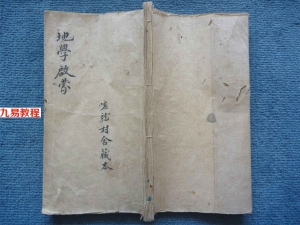 地學啟蒙
村舍藏本
九易教程